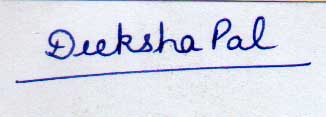 Deeksha Pal